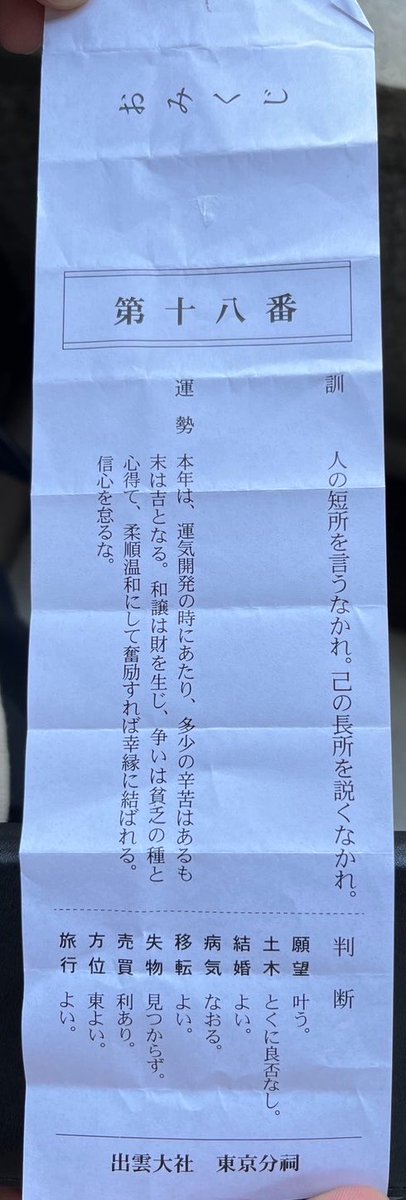 おみくじ
第十八番
訓
人の短所を言うなかれ。己の長所を説くなかれ。
運勢
本年は、運気開発の時にあたり、多少の辛苦はあるも
末は吉となる。和譲は財を生じ、争いは貧乏の種と
心得て、柔順温和にして奮励すれば幸縁に結ばれる。
信心を怠るな。
判断
願望 叶う。
土木 とくに良否なし。
結婚 よい。
病気 なおる。
移転 よい。
失物 見つからず。
売買 利あり。
方位 東よい。
旅行 よい。
出雲大社 東京分祠